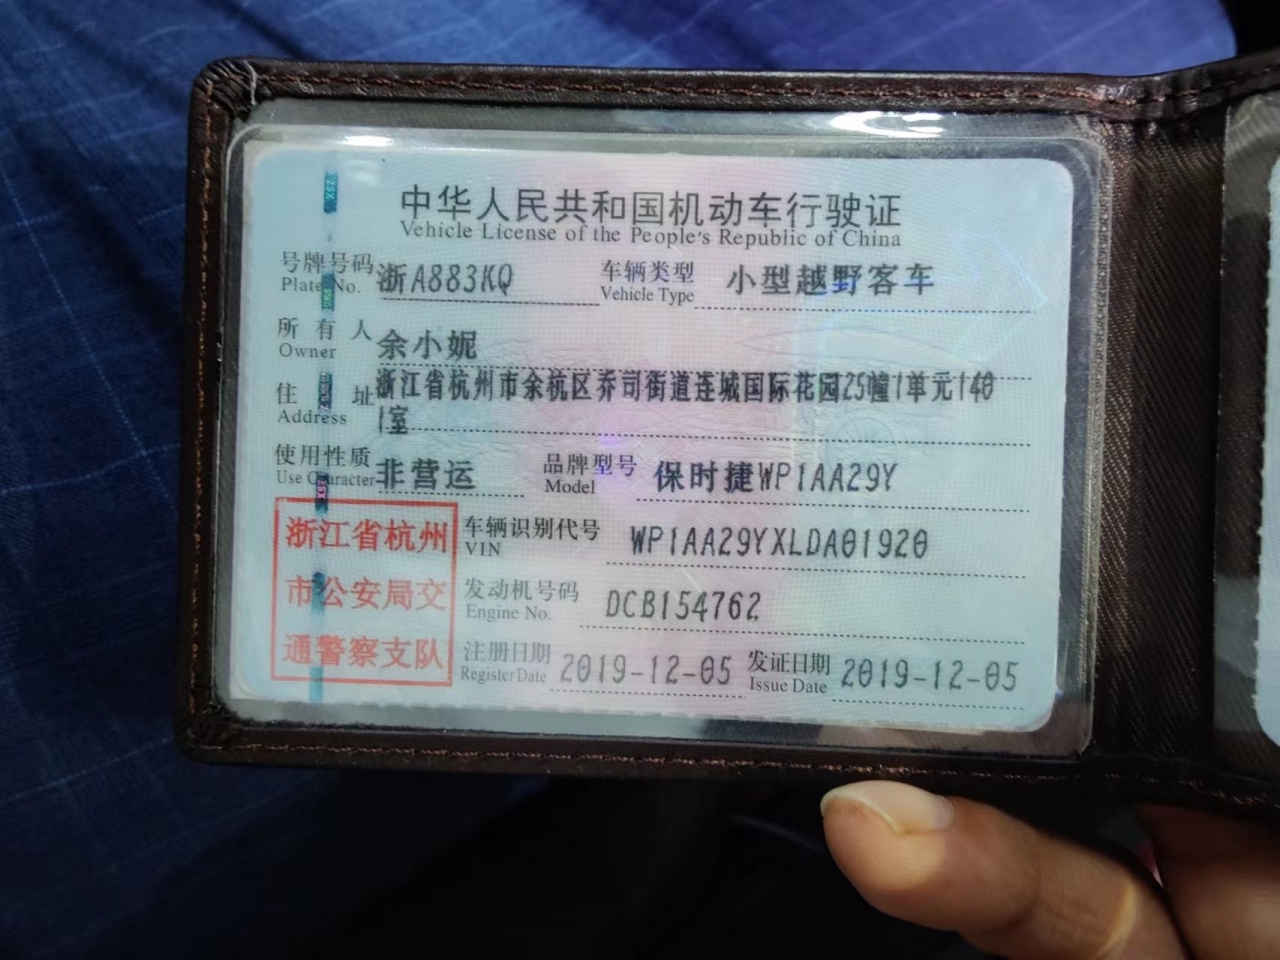 中华人民共和国机动车行驶证
Vehicle License of the People's Republic of China
号牌号码 浙A883KQ 车辆类型 小型越野客车
Plate No. Vehicle Type
所有人 余小妮
Owner
住址 浙江省杭州市余杭区乔司街道连城国际花园25幢1单元140
Address 1室
使用性质 非营运 品牌型号 保时捷WP1AA29Y
Use Character Model
浙江省杭州 车辆识别代号 WP1AA29YXLDA01920
VIN
市公安局交 发动机号码 DCB154762
Engine No.
通警察支队 注册日期 2019-12-05 发证日期 2019-12-05
Register Date Issue Date